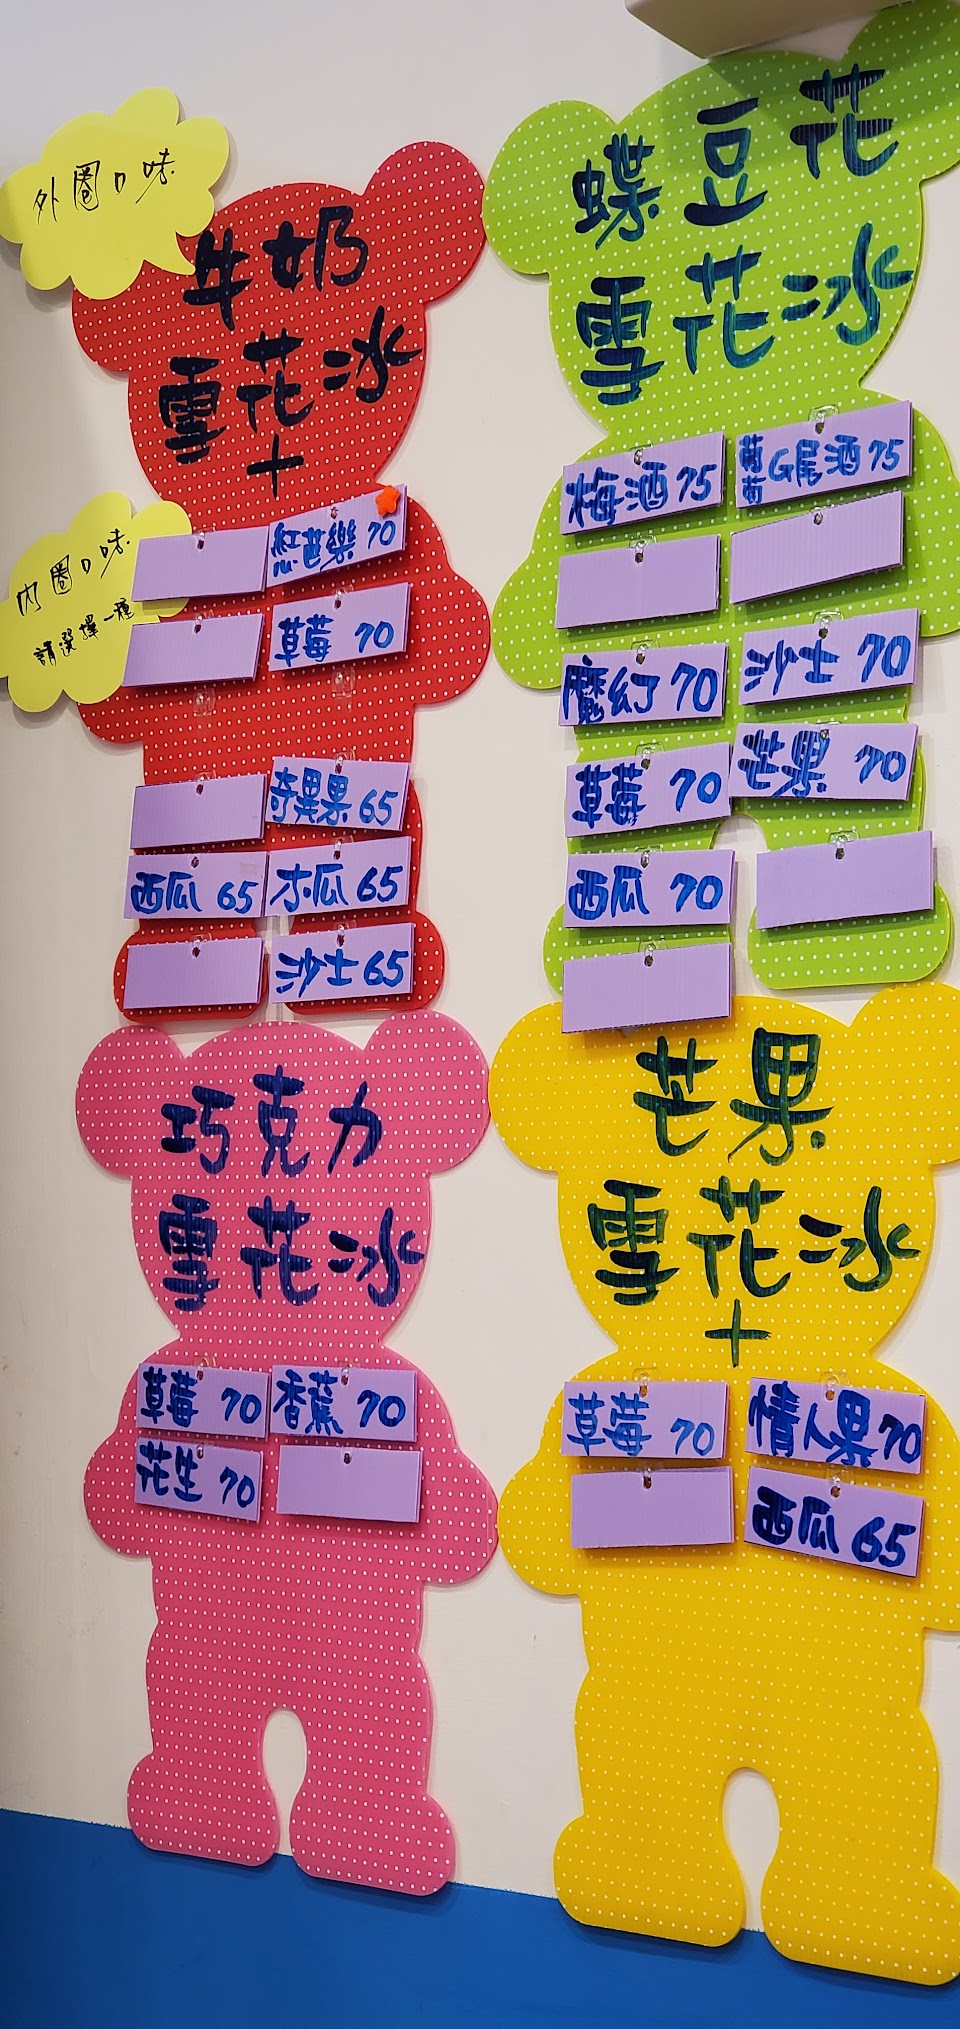 外圈口味
牛奶
雪花冰
+
內圈口味
請選擇一種
紅芭樂 70
草莓 70
奇異果 65
西瓜 65
木瓜 65
沙士 65
蝶豆花
雪花冰
梅酒 75
葡萄G尾酒 75
魔幻 70
沙士 70
草莓 70
芒果 70
西瓜 70
巧克力
雪花冰
草莓 70
香蕉 70
花生 70
芒果
雪花冰
+
草莓 70
情人果 70
西瓜 65